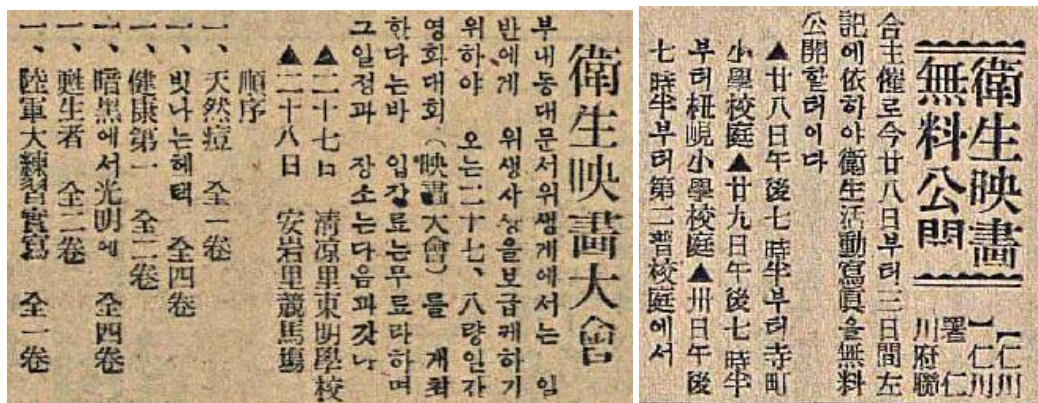 衛生映畵大會
부내동대문서위생게에서는 일
반에게 위생사상을보급케하기
위하야 오는二十七、八량일간
영화대회(映畵大會)를 개최
한다는바 입장료는무료라하며
그일정과 장소는다음과갓다
▲二十七日 淸凉里東明學校
▲二十八日 安岩里競馬塲
順序
一、天然痘 全一卷
一、빗나는헤택 全四卷
一、健康第一 全二卷
一、暗黑에서光明에 全四卷
一、甦生者 全二卷
一、陸軍大練習實寫 全一卷
衛生映畵
無料公開
【仁川
】仁川
署 仁
川府聯
合主催로今廿八日부터三日間左
記에依하야衛生活動寫眞을無料
公開할터이다
▲廿八日午後七時半부터寺町
小學校庭▲廿九日午後七時半
부터杻峴小學校庭▲卅日午後
七時半부터第二普校庭에서